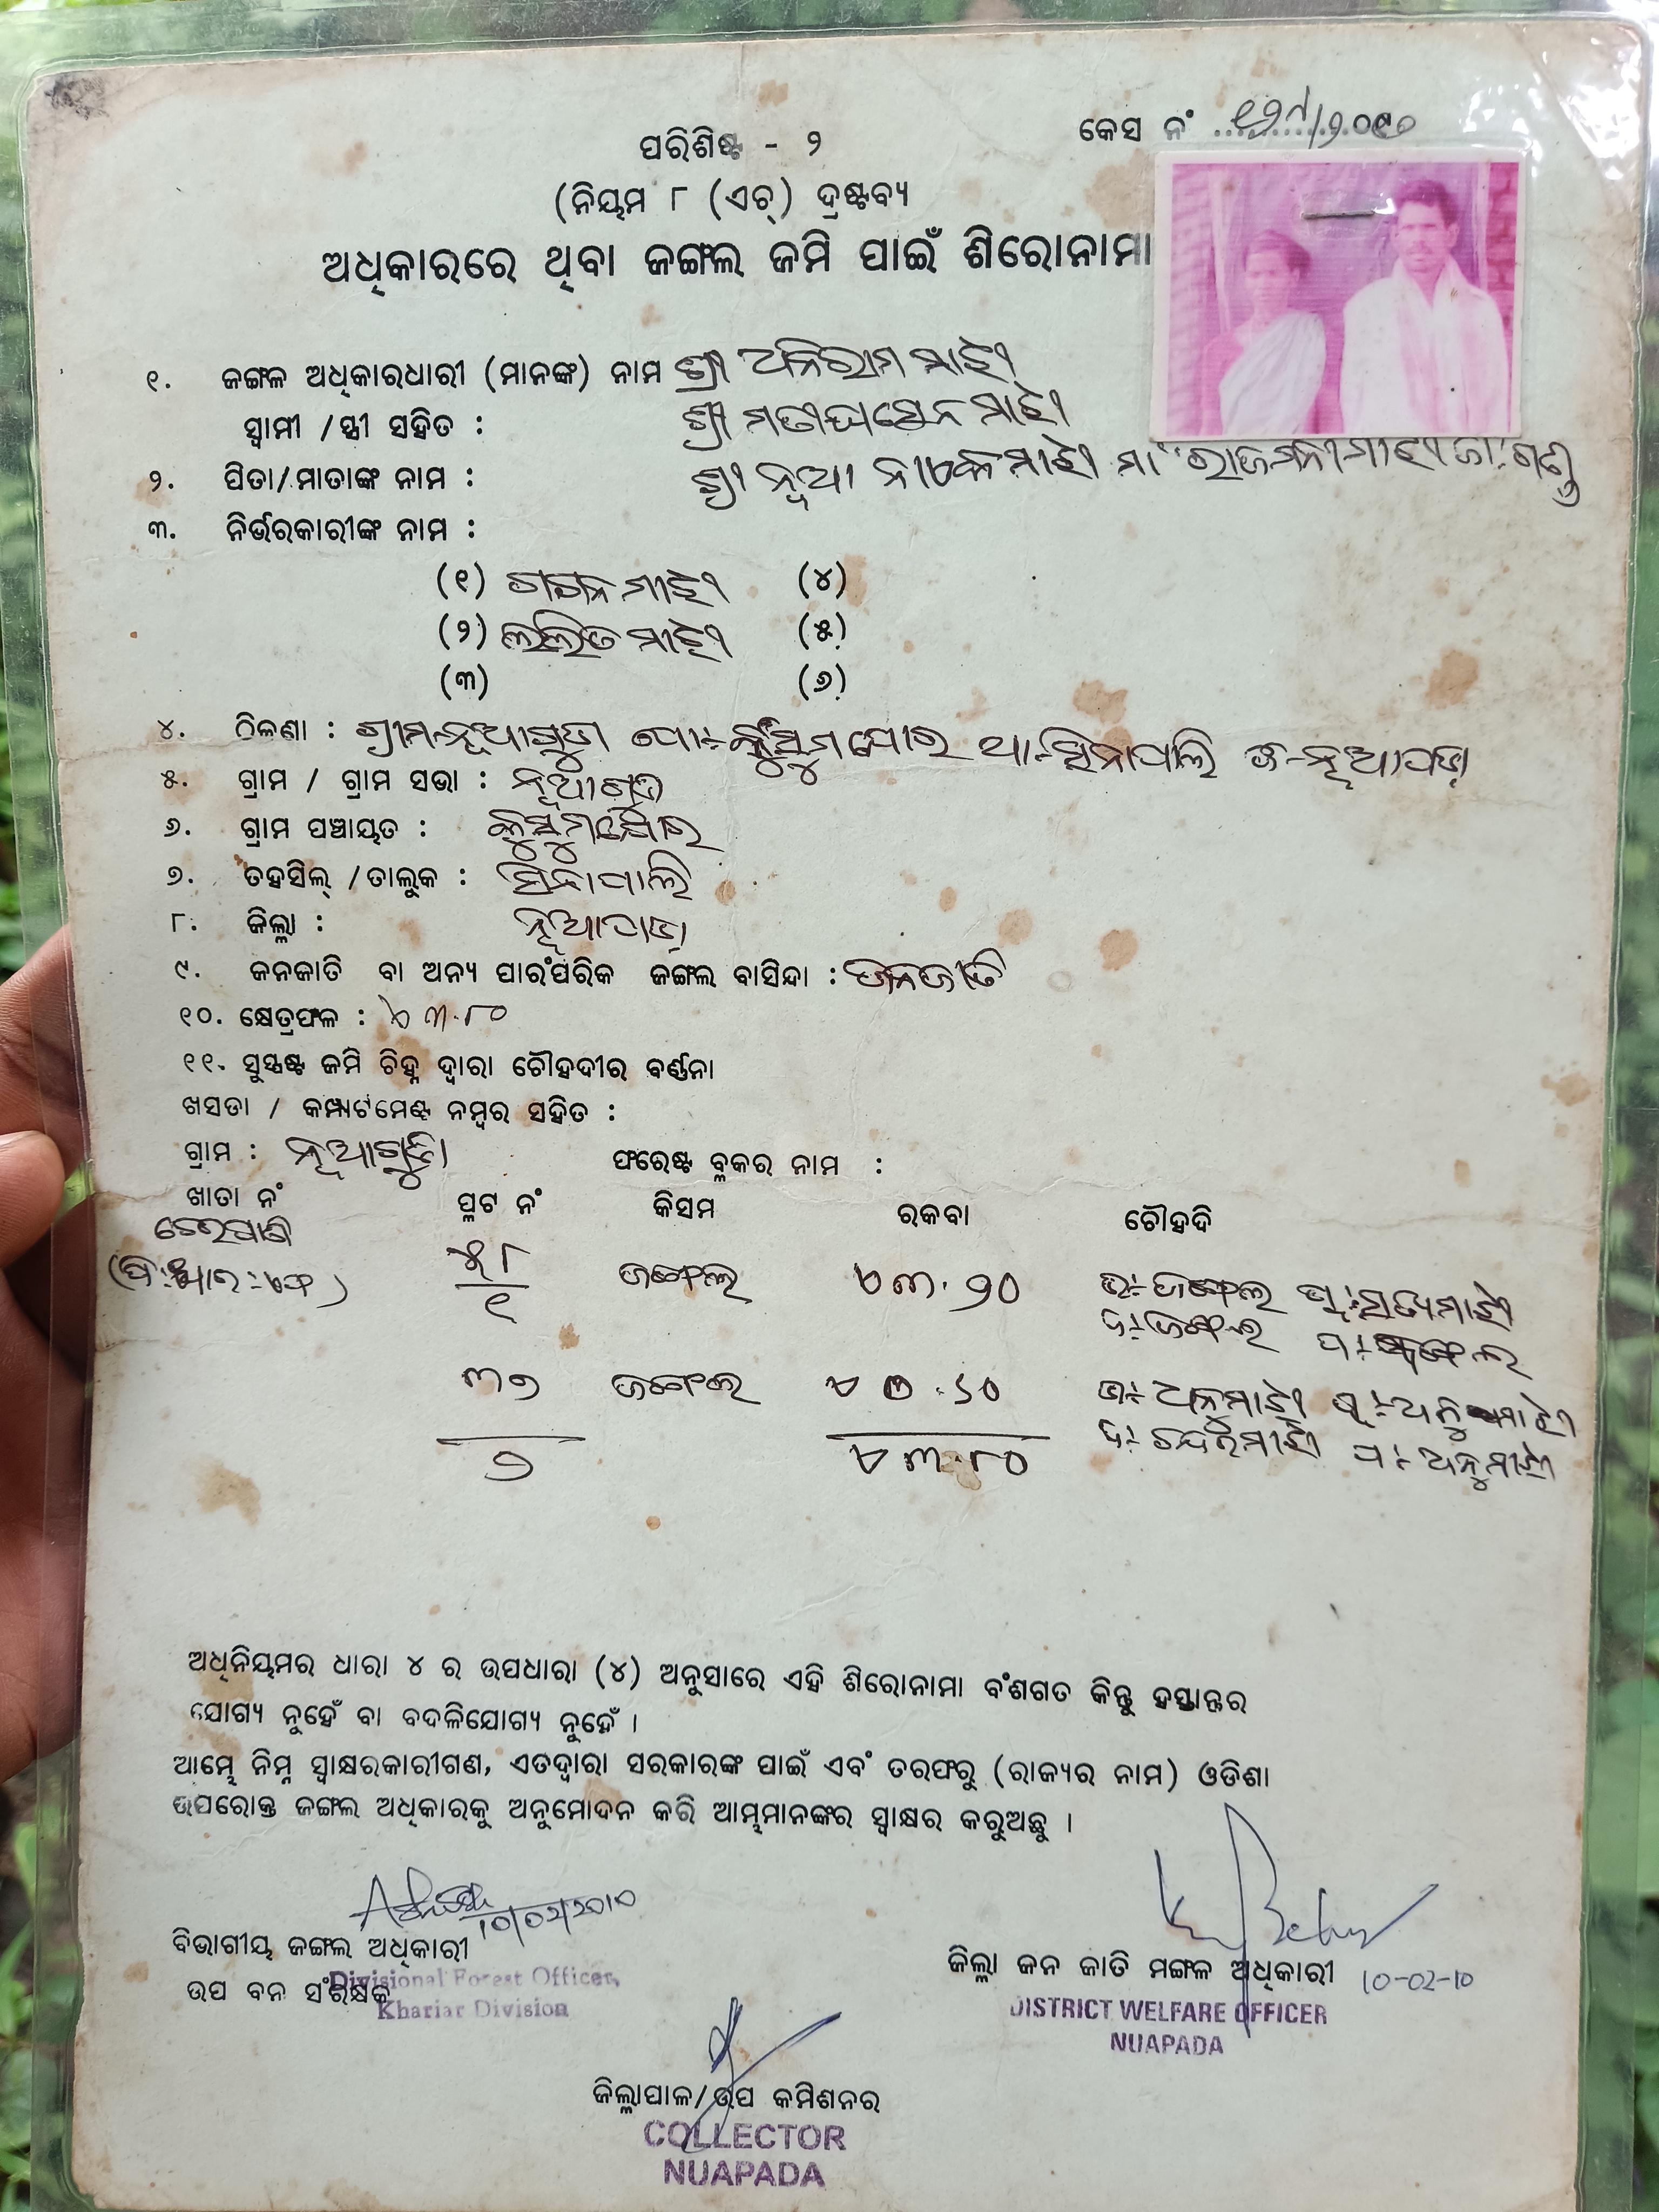 ପରିଶିଷ୍ଟ - ୨
କେସ ନଂ ୧୨୩/୨୦୧୦
(ନିୟମ ୮ (ଏଚ୍) ଦ୍ରଷ୍ଟବ୍ୟ
ଅଧିକାରରେ ଥିବା ଜଙ୍ଗଲ ଜମି ପାଇଁ ଶିରୋନାମା
୧. ଜଙ୍ଗଳ ଅଧିକାରଧାରୀ (ମାନଙ୍କ) ନାମ ଶ୍ରୀ ଅନିରାମ ମାଝୀ
ସ୍ୱାମୀ /ସ୍ତ୍ରୀ ସହିତ : ଶ୍ରୀ ମାଝୀ
୨. ପିତା/ମାତାଙ୍କ ନାମ : ମାଝୀ
୩. ନିର୍ଭରକାରୀଙ୍କ ନାମ :
(୧) ଗଗନ ମାଝୀ (୪)
(୨) ଲଲିତ ମାଝୀ (୫)
(୩) (୬)
୪. ଠିକଣା : ଗ୍ରାମ-ନୂଆଗୁଡା ପୋ:- ଥା-ସିନାପାଲି ଜି-ନୂଆପଡା
୫. ଗ୍ରାମ / ଗ୍ରାମ ସଭା : ନୂଆଗୁଡା
୬. ଗ୍ରାମ ପଞ୍ଚାୟତ :
୭. ତହସିଲ୍ /ତାଲୁକ : ସିନାପାଲି
୮. ଜିଲ୍ଲା : ନୂଆପଡା
୯. ଜନଜାତି ବା ଅନ୍ୟ ପାରଂପରିକ ଜଙ୍ଗଲ ବାସିନ୍ଦା : ଜନଜାତି
୧୦. କ୍ଷେତ୍ରଫଳ : ଏ ୩.୮୦
୧୧. ସୁସ୍ପଷ୍ଟ ଜମି ଚିହ୍ନ ଦ୍ୱାରା ଚୌହଦୀର ବର୍ଣ୍ଣନା
ଖସଡା / କମ୍ପାର୍ଟମେଣ୍ଟ ନମ୍ବର ସହିତ :
ଗ୍ରାମ : ନୂଆଗୁଡା ଫରେଷ୍ଟ ବ୍ଳକର ନାମ :
ଖାତା ନଂ ପ୍ଳଟ ନଂ କିସମ ରକବା ଚୌହଦି
୫୮ ଜଙ୍ଗଲ ଏ ୩.୨୦ ଉ:- ଜଙ୍ଗଲ ପୂ:- ମାଝୀ
୧ ଦ:- ଜଙ୍ଗଲ ପ:- ଜଙ୍ଗଲ
୩୭ ଜଙ୍ଗଲ ଏ ୦.୬୦ ଉ:- ଅନୁମାଝୀ ପୂ:- ଅନୁମାଝୀ
୨ ଏ ୩.୮୦ ଦ:- ପ:- ଅନୁମାଝୀ
ଅଧିନିୟମର ଧାରା ୪ ର ଉପଧାରା (୪) ଅନୁସାରେ ଏହି ଶିରୋନାମା ବଂଶଗତ କିନ୍ତୁ ହସ୍ତାନ୍ତର
ଯୋଗ୍ୟ ନୁହେଁ ବା ବଦଳିଯୋଗ୍ୟ ନୁହେଁ ।
ଆମ୍ଭେ ନିମ୍ନ ସ୍ୱାକ୍ଷରକାରୀଗଣ, ଏତଦ୍ୱାରା ସରକାରଙ୍କ ପାଇଁ ଏବଂ ତରଫରୁ (ରାଜ୍ୟର ନାମ) ଓଡିଶା
ଉପରୋକ୍ତ ଜଙ୍ଗଲ ଅଧିକାରକୁ ଅନୁମୋଦନ କରି ଆମ୍ଭମାନଙ୍କର ସ୍ୱାକ୍ଷର କରୁଅଛୁ ।
10/02/2010
ବିଭାଗୀୟ ଜଙ୍ଗଲ ଅଧିକାରୀ
ଉପ ବନ ସଂରକ୍ଷକ
Divisional Forest Officer,
Khariar Division
ଜିଲ୍ଲା ଜନ ଜାତି ମଙ୍ଗଳ ଅଧିକାରୀ 10-02-10
DISTRICT WELFARE OFFICER
NUAPADA
ଜିଲ୍ଲାପାଳ/ଉପ କମିଶନର
COLLECTOR
NUAPADA